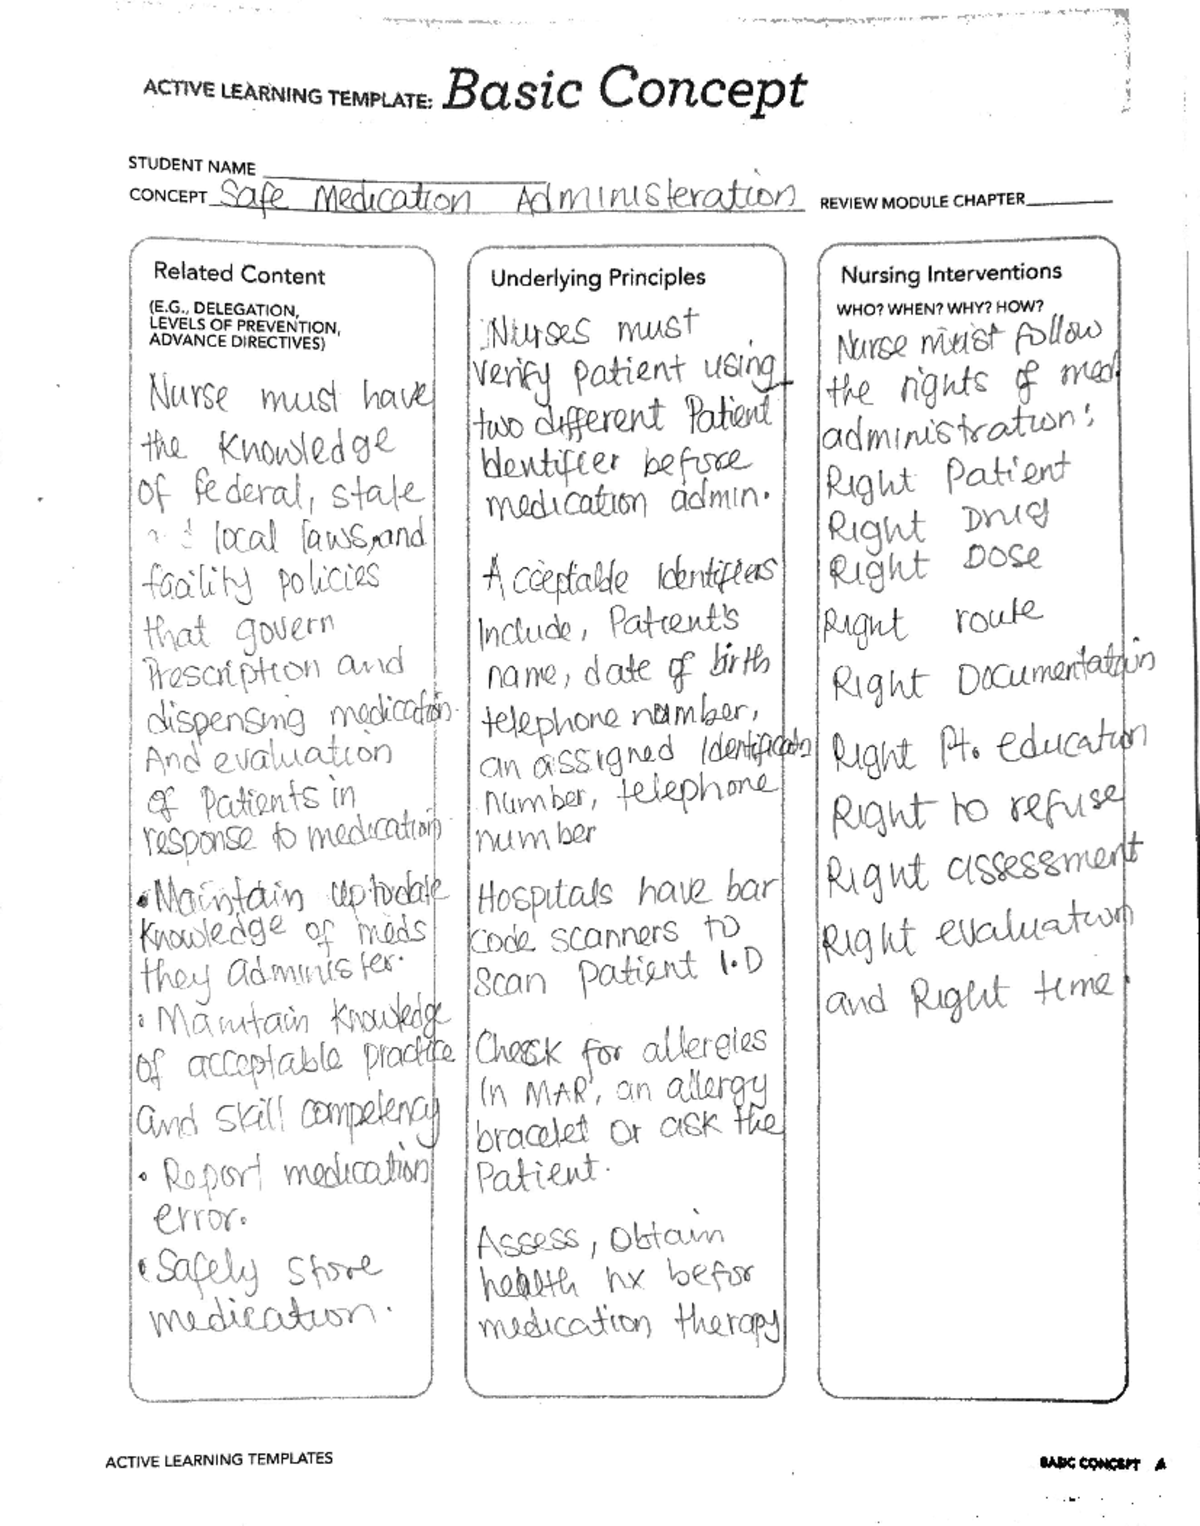 ACTIVE LEARNING TEMPLATE: Basic Concept
STUDENT NAME
CONCEPT Safe Medication Administeration
REVIEW MODULE CHAPTER
Related Content
(E.G., DELEGATION,
LEVELS OF PREVENTION,
ADVANCE DIRECTIVES)
Nurse must have
the knowledge
of federal, state
local laws, and
facility policies
that govern
Prescription and
dispensing medication.
And evaluation
of Patients in
response to medication.
• Maintain uptodate
knowledge of meds
they administer.
• Maintain knowledge
of acceptable practice
and skill competency
• Report medication
error.
• Safely store
medication.
Underlying Principles
Nurses must
verify patient using
two different Patient
Identifier before
medication admin.
Acceptable Identifiers
Include, Patient's
name, date of birth
telephone number,
an assigned Identification
number, telephone
number
Hospitals have bar
code scanners to
Scan patient I.D
Check for allergies
In MAR, an allergy
bracelet or ask the
Patient.
Assess, Obtain
health hx befor
medication therapy
Nursing Interventions
WHO? WHEN? WHY? HOW?
Nurse must follow
the rights of med
administration:
Right Patient
Right Drug
Right Dose
Right route
Right Documentation
Right Pt. education
Right to refuse
Right assessment
Right evaluation
and Right time.
ACTIVE LEARNING TEMPLATES
BASIC CONCEPT A